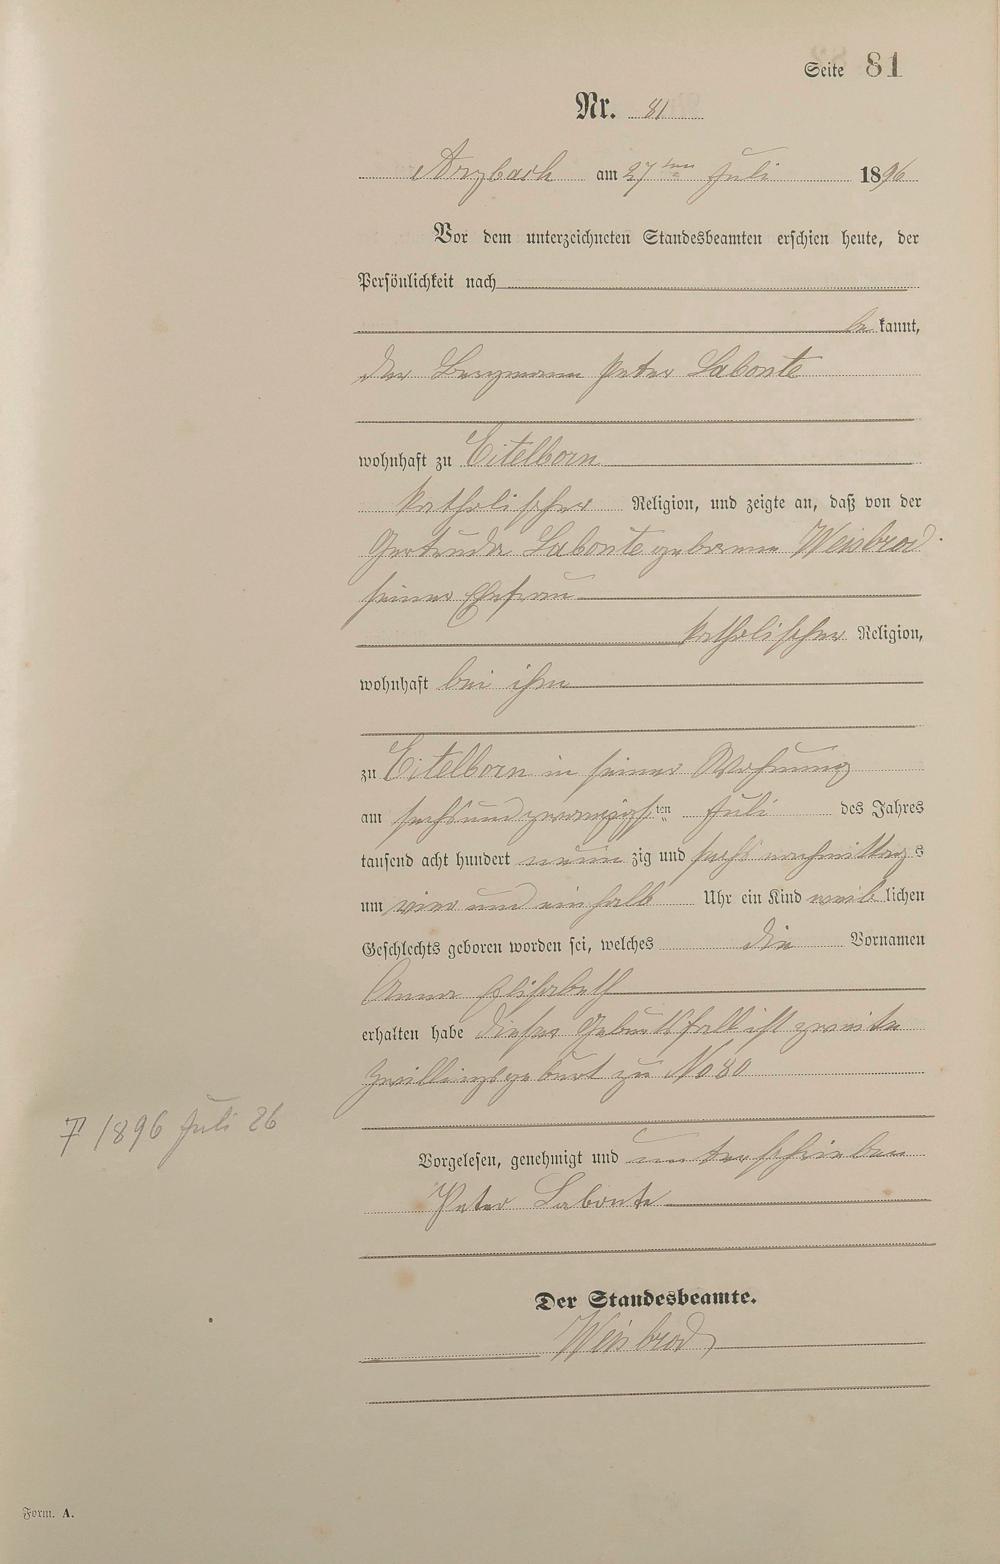 Seite 81
Nr. 81
Arzbach am 27ten Juli 1896
Vor dem unterzeichneten Standesbeamten erschien heute, der
Persönlichkeit nach
be kannt,
der Bergmann Peter Labonte
wohnhaft zu Eitelborn
katholischer Religion, und zeigte an, daß von der
Gertrude Labonte geborenen Weisbrod
seiner Ehefrau
katholischer Religion,
wohnhaft bei ihm
zu Eitelborn in seiner Wohnung
am sechsundzwanzigsten Juli des Jahres
tausend acht hundert neun zig und sechs nachmittags
um vier und ein halb Uhr ein Kind weib lichen
Geschlechts geboren worden sei, welches die Vornamen
Anna Elisabeth
erhalten habe dieser Geburtsfall ist zweite
Zwillingsgeburt zu No 80
† 1896 Juli 26
Vorgelesen, genehmigt und unterschrieben
Peter Labonte
Der Standesbeamte.
Weisbrod
Form. A.